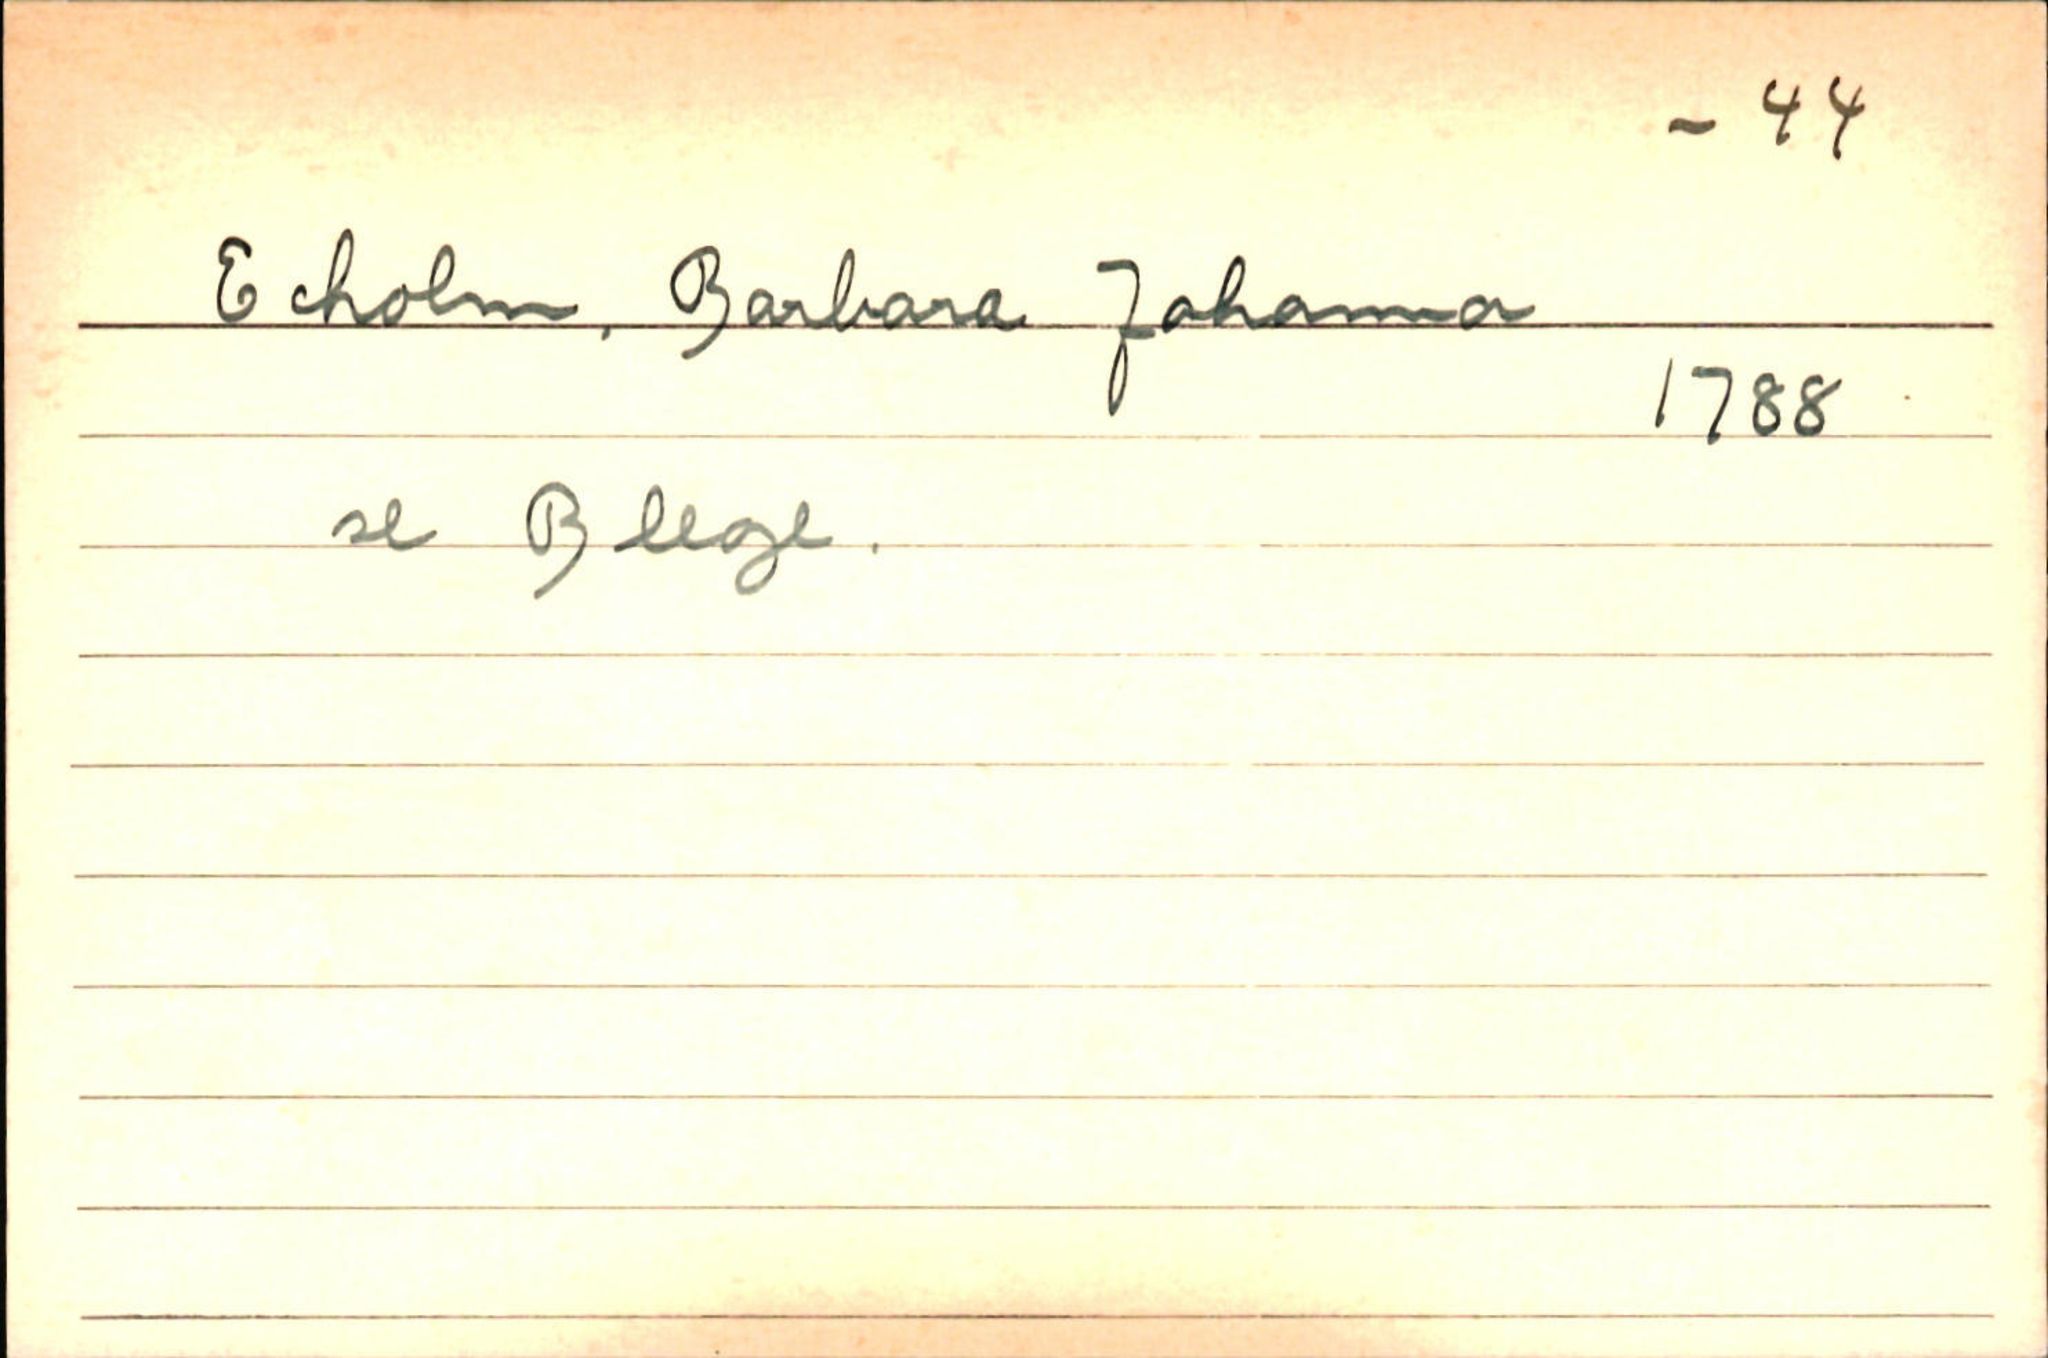 - 44
Echolm, Barbara Johanna
1788
se Blege.